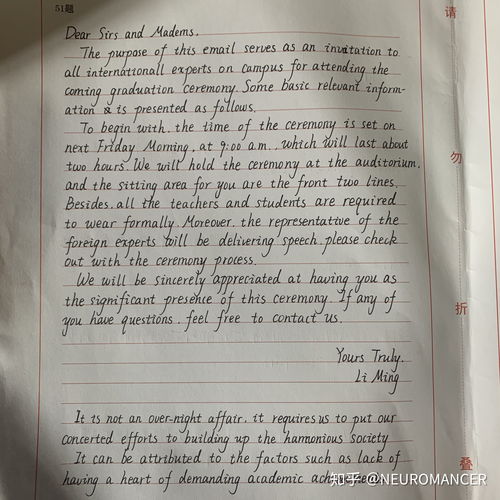 51题
请
Dear Sirs and Madems,
The purpose of this email serves as an invitation to
all internationall experts on campus for attending the
coming graduation ceremony. Some basic relevant inform-
ation is presented as follows.
To begin with, the time of the ceremony is set on
next Friday Morning, at 9:00 a.m., which will last about
two hours. We will hold the ceremony at the auditorium,
勿
and the sitting area for you are the front two lines.
Besides, all the teachers and students are required
to wear formally. Moreover, the representative of the
foreign experts will be delivering speech, please check
out with the ceremony process.
We will be sincerely appreciated at having you as
the significant presence of this ceremony. If any of
折
you have questions, feel free to contact us.
Yours Truly,
Li Ming
It is not an over-night affair, it requires us to put our
concerted efforts to building up the harmonious society
It can be attributed to the factors such as lack of
叠
having a heart of demanding academic
知乎 @NEUROMANCER